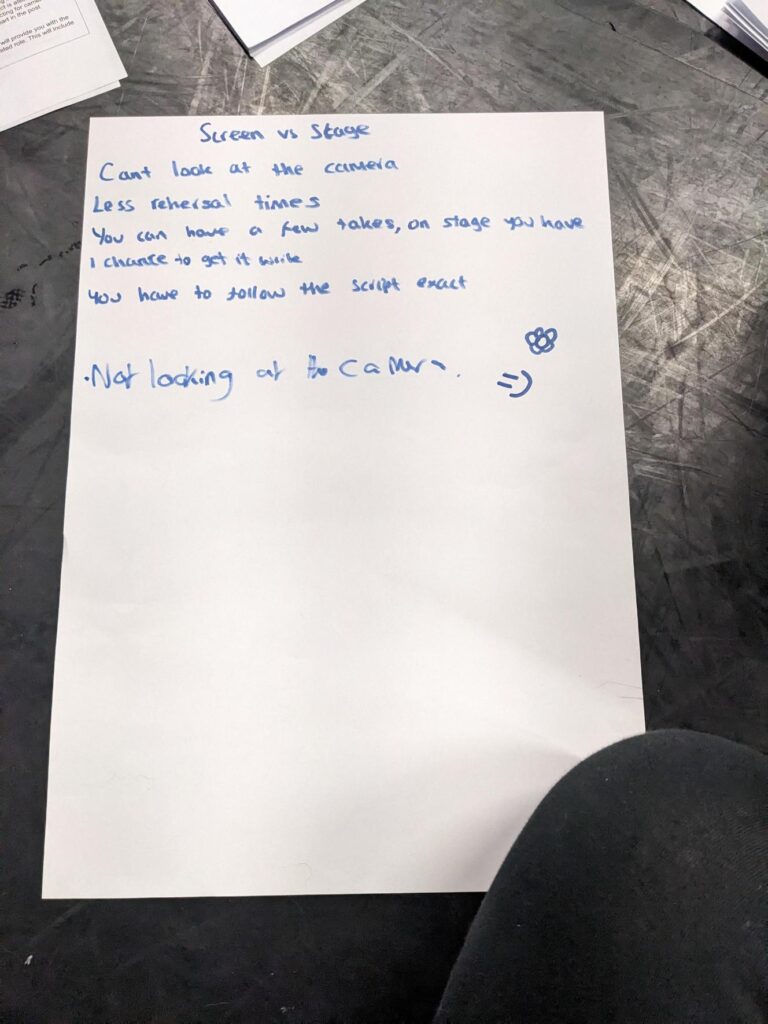 ct is all
cting for came
art in the post.
will provide you with the
ated role. This will include
Screen vs Stage
Cant look at the camera
Less rehersal times
You can have a few takes, on stage you have
1 chance to get it
You have to follow the script exact
•Not looking at the camera.
=)